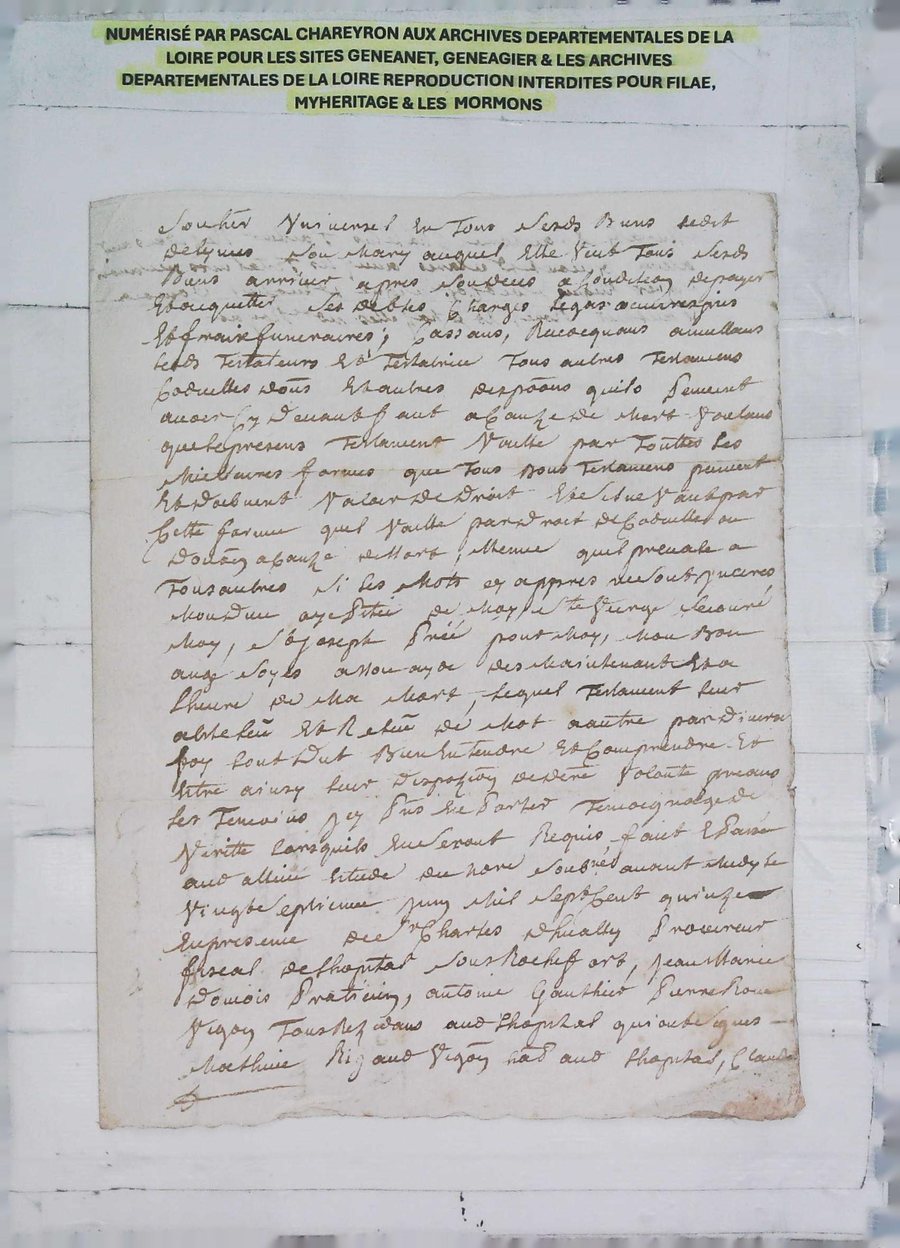 NUMÉRISÉ PAR PASCAL CHAREYRON AUX ARCHIVES DEPARTEMENTALES DE LA
LOIRE POUR LES SITES GENEANET, GENEAGIER & LES ARCHIVES
DEPARTEMENTALES DE LA LOIRE REPRODUCTION INTERDITES POUR FILAE,
MYHERITAGE & LES MORMONS
Son her Vniversel En Tous Sesds Biens ledit
Son Mary auquel Elle Veut Tous Sesds
Biens arriver apres Son deces a Condition depayer
Etacquetter Ses debtes Charges legas oeuvres pies
Et frais funeraires; Cassans, Revocquans anullans
lesds Testateurs Et Testatrice Tous autres Testamens
Codicilles dons Et autres quils Peuvent
avoir Cy Devant fait a Cause de Mort Voulans
que le present Testament Vaille par Touttes les
Meilleures formes que Tous Bons Testamens peuvent
Et doibvent Valoir De Droit Et Sil ne Vaut par
Cette forme quil Vaille par Droit de Codicilles ou
Donaon a Cause de Mort Mesme quil prevale a
Tous autres Si les Mots cy appres ne Sont Inceres
Mon Dieu aye Pitié de Moy, Ste Vierge Secouré
Moy, St Joseph Priéé pour Moy, Mon Bon
ange Soyes a Mon ayde des Maintenant Et a
Lheure de Ma Mort, lequel Testament leur
a Esté Leu Et Releu de Mot a autre par Diverse
foy Lont Dit Bien Entendre Et Comprendre Et
Estre ainsy leur Et derre Volonté prians
Les Temoins Icy Pns En Porter Temoignage de
Veritté Lorsquils En Seront Requis, fait Et Passé
aud Estude du nore Soubné avant Midy le
Vingt Septieme Juin Mil Sept Cent quinze
En presence de Sr Charles Procureur
fiscal de Lhopital Sous Rochefort, Jean Marie
Praticien, antoine Gauthier Pierre
Vigon Tous Rezidans aud Lhopital qui ont Signés
Mathieu Rigaud Vigon had aud Lhopital, Claude